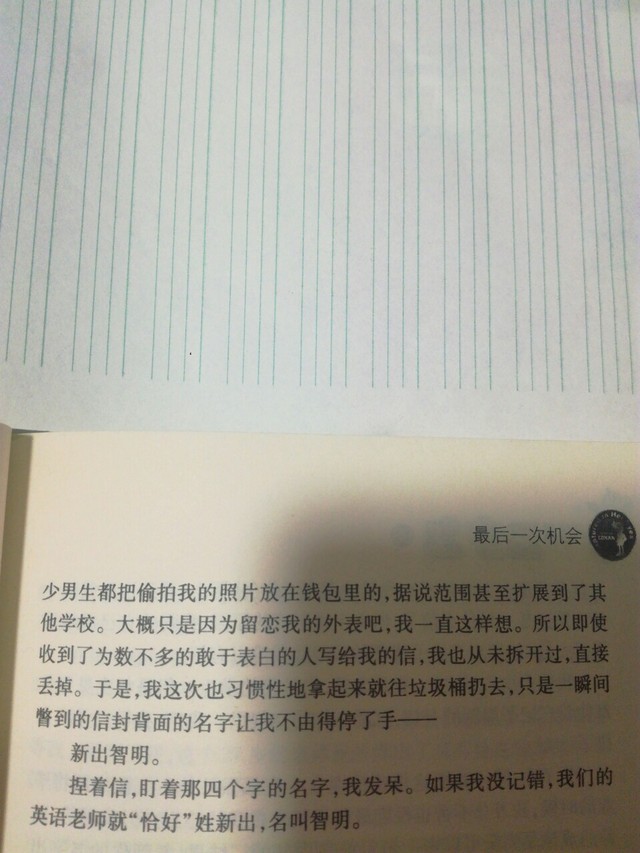 最后一次机会
少男生都把偷拍我的照片放在钱包里的，据说范围甚至扩展到了其
他学校。大概只是因为留恋我的外表吧，我一直这样想。所以即使
收到了为数不多的敢于表白的人写给我的信，我也从未拆开过，直接
丢掉。于是，我这次也习惯性地拿起来就往垃圾桶扔去，只是一瞬间
瞥到的信封背面的名字让我不由得停了手——
新出智明。
捏着信，盯着那四个字的名字，我发呆。如果我没记错，我们的
英语老师就“恰好”姓新出，名叫智明。